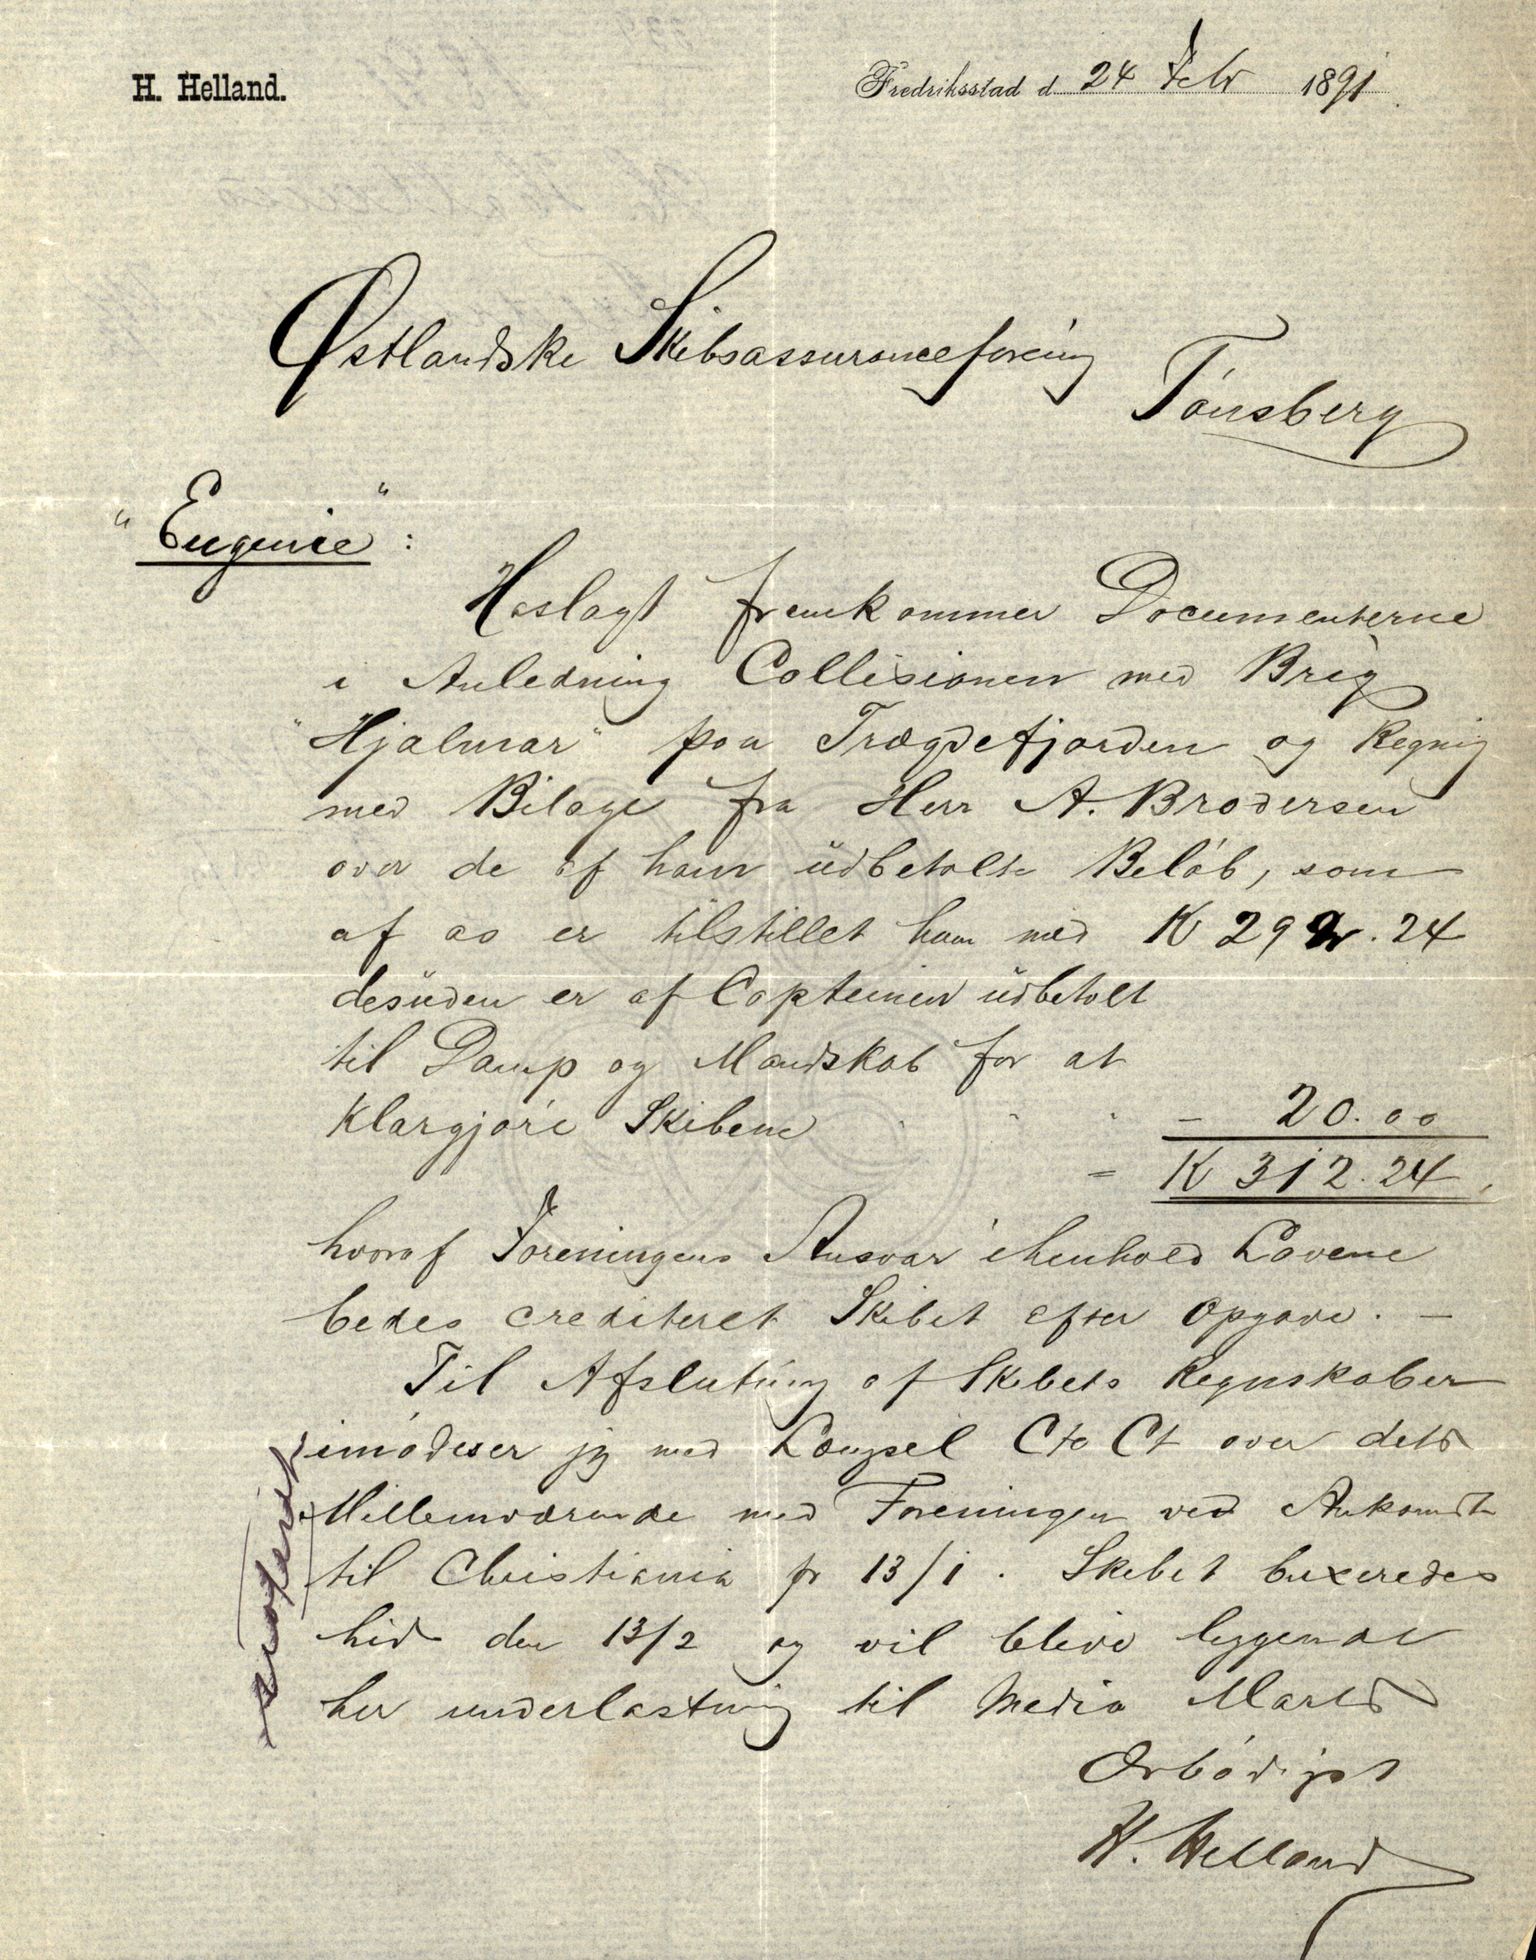 H. Helland.
Fredriksstad d. 24 Febr 1891.
Østlandske Skibsassuranceforening
Tönsberg
"Eugenie":
Hoslagt fremkommer Documenterne
i Anledning Collisionen med Brig
"Hjalmar" paa Trægdefjorden og Regnig
med Bilage fra Herr A. Brodersen
over de af ham üdbetalte Belöb, som
af os er tilstillet ham med K 292.24
desüden er af Capteinen üdbetalt
til Damp og Mandskab for at
Klargjöre Skibene - 20.00
= K 312.24.
hvoraf Foreningens Ansvar i Henhold Lovene
bedes crediteret Skibet efter Opgave. —
Til Afslutning af Skibets Regnskaber
imödeser jeg med Længsel Cto Ct over dets
Mellemværende med Foreningen ved Ankomst
til Christiania pr 13/1. Skibet buxeredes
hid den 13/2 og vil blive liggende
her underlastning til Media Marts
Ærbödigst
H. Helland